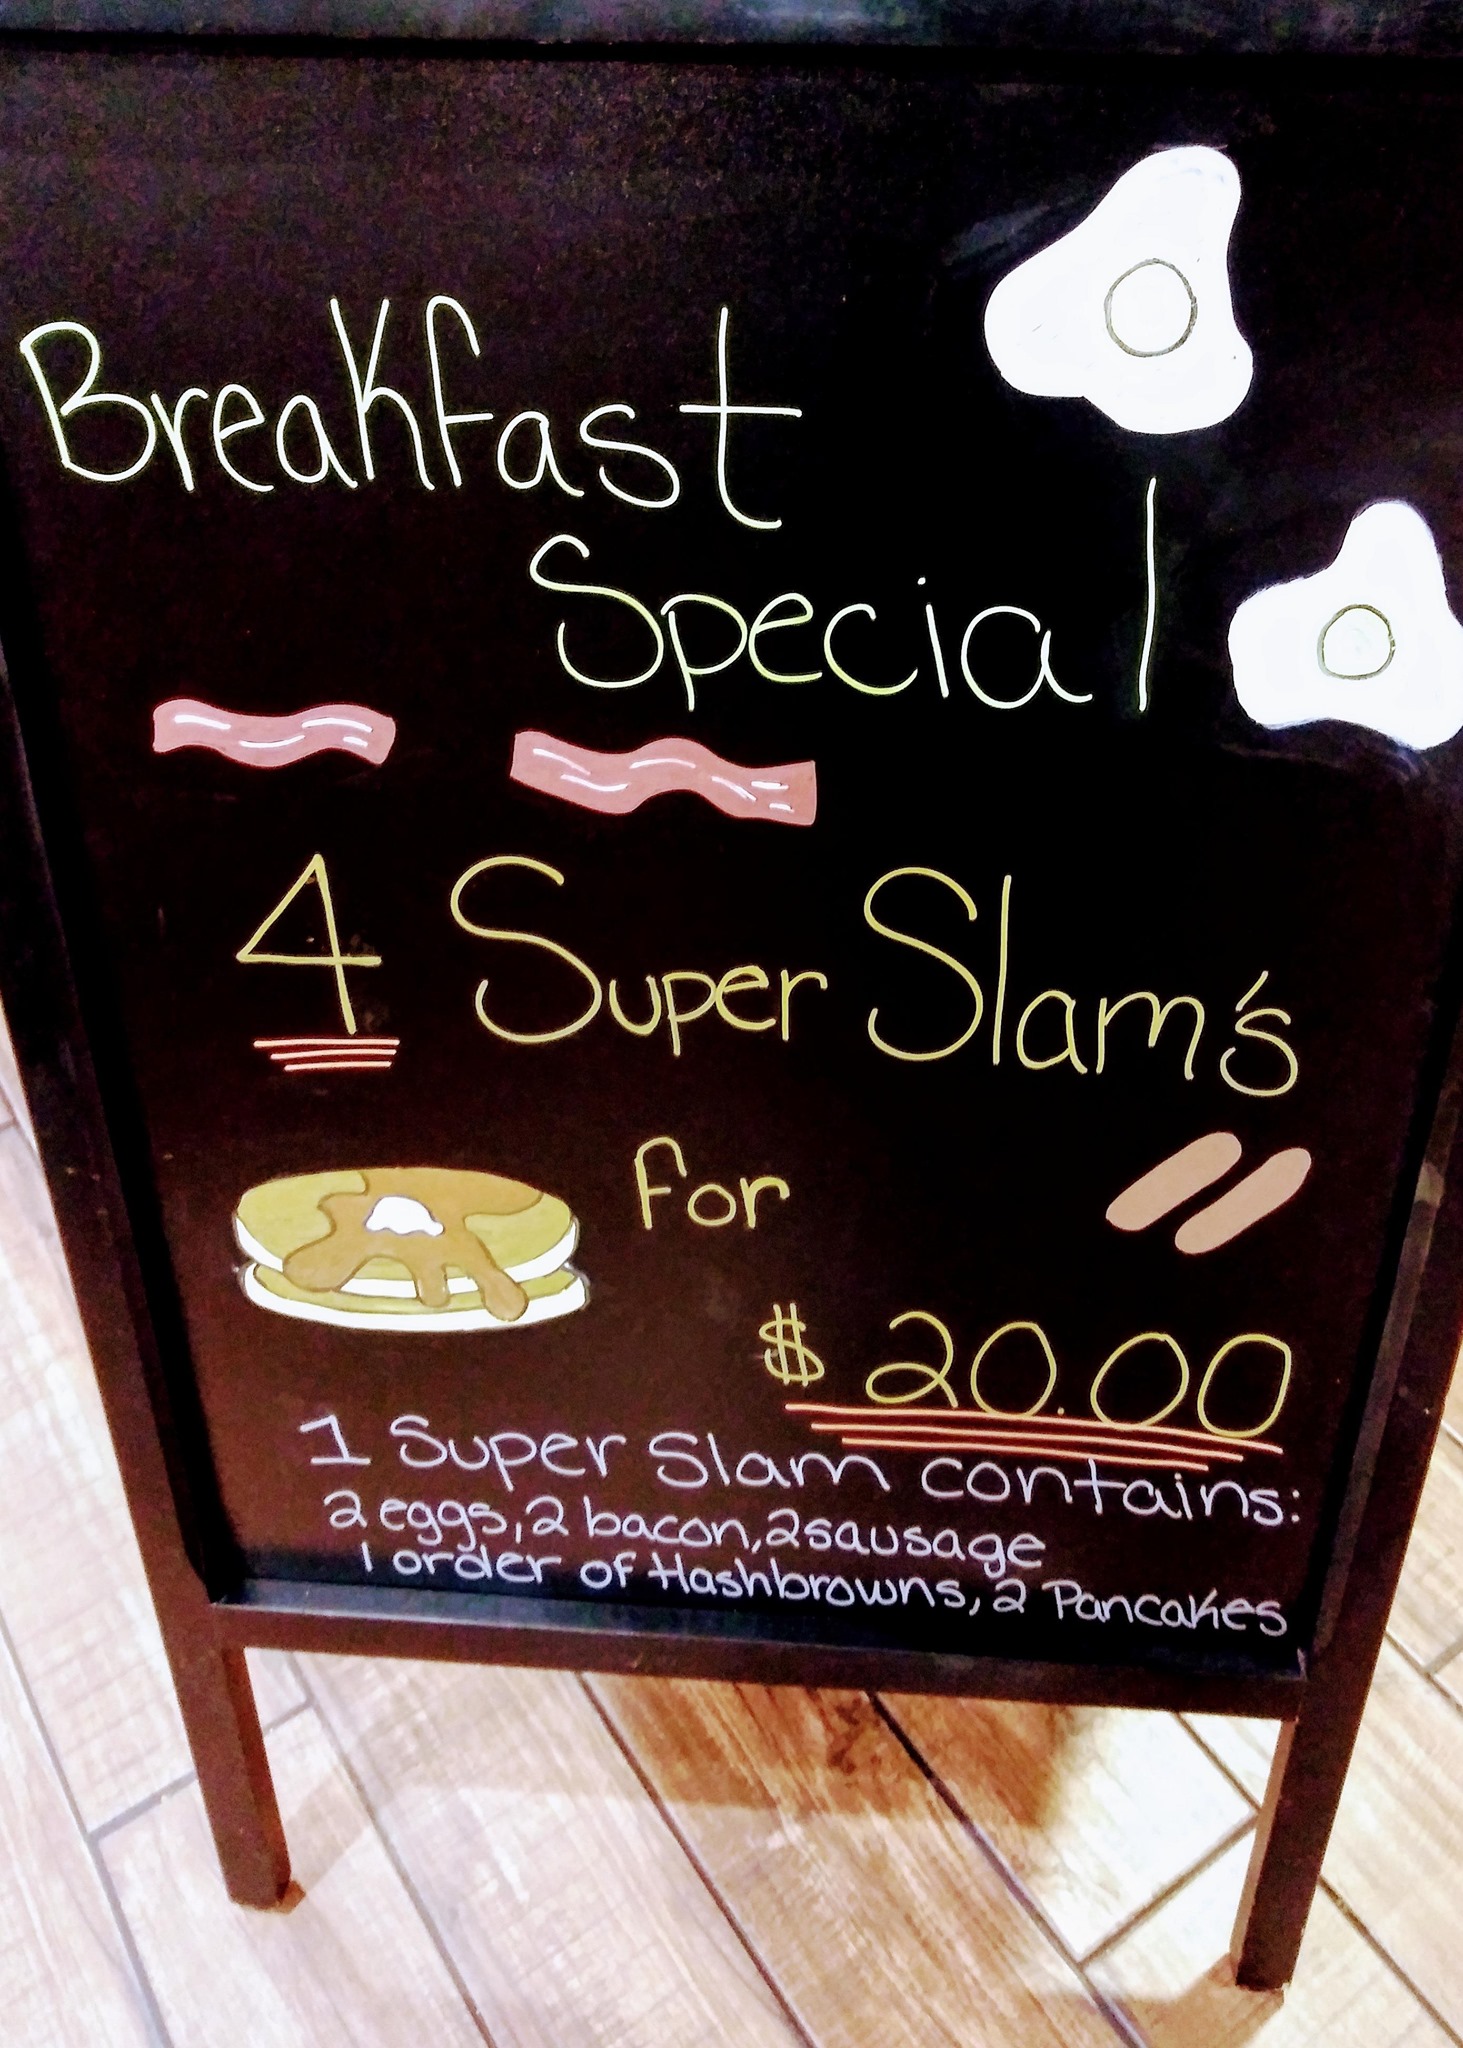 Breakfast
Special
4 Super Slam's
for
$ 20.00
1 Super Slam contains:
2 eggs, 2 bacon, 2 sausage
1 order of Hashbrowns, 2 Pancakes